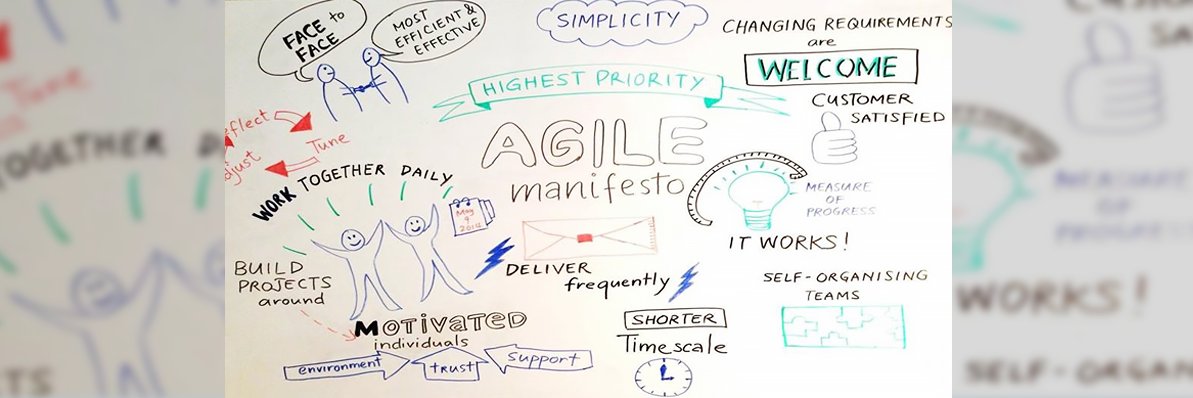 FACE to
FACE
MOST
EFFICIENT &
EFFECTIVE
SIMPLICITY
CHANGING REQUIREMENTS
are
WELCOME
HIGHEST PRIORITY
CUSTOMER
SATISFIED
AGILE
manifesto
eflect
Tune
djust
WORK TOGETHER DAILY
May
9
MEASURE
OF
PROGRESS
IT WORKS!
BUILD
PROJECTS
around
DELIVER
frequently
SELF-ORGANISING
TEAMS
MOTIVATED
individuals
SHORTER
Timescale
environment
trust
support